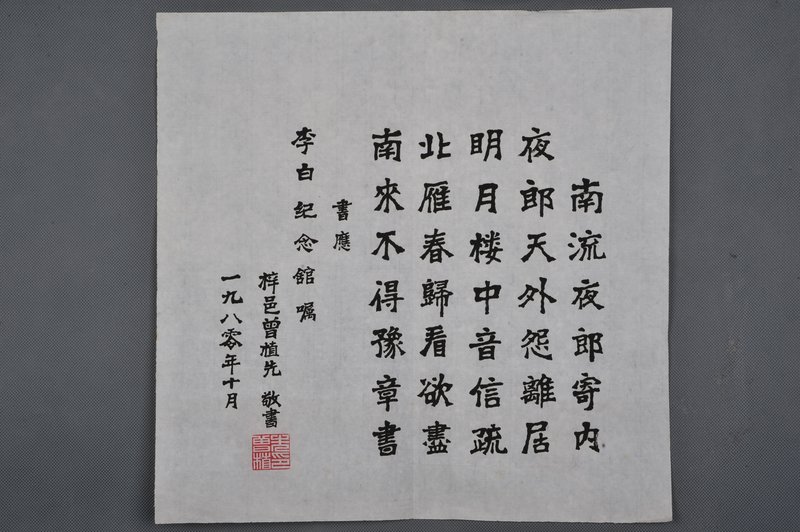 南流夜郎寄内
夜郎天外怨離居
明月楼中音信疏
北雁春歸看欲盡
南來不得豫章書
書應
李白纪念館嘱
梓邑曾植先敬書
一九八零年十月